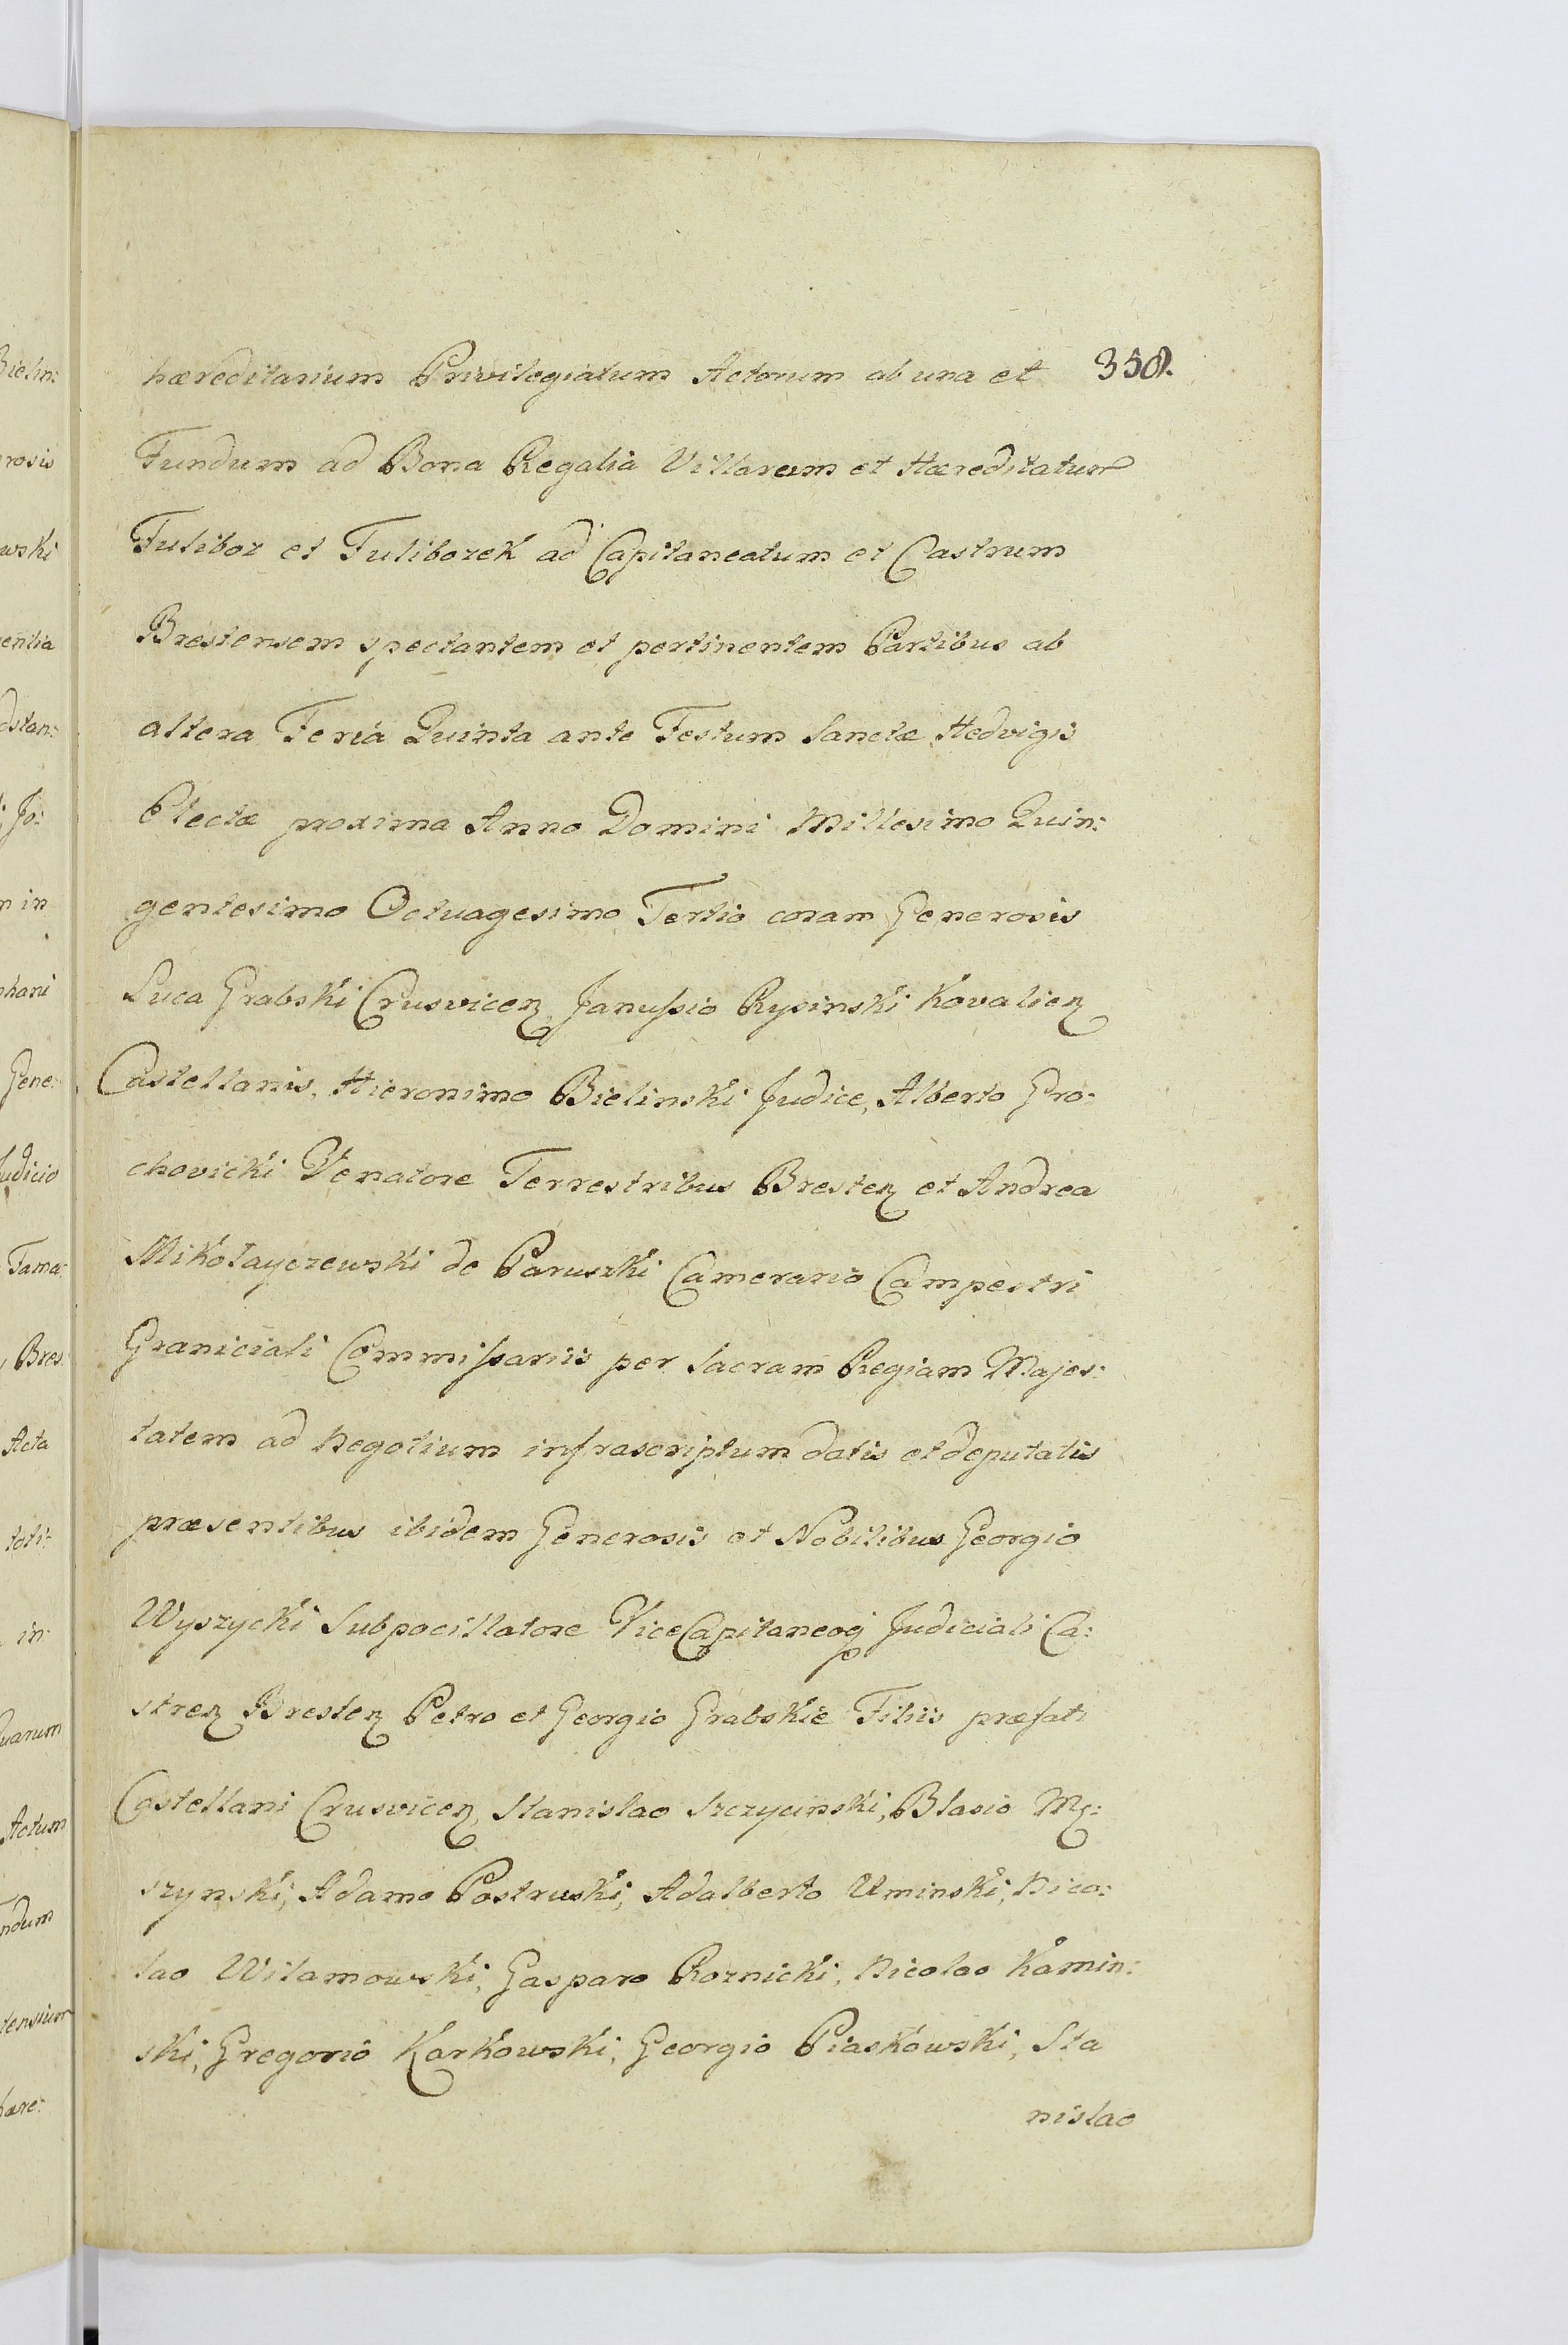 hæreditarium Privilegiatum Actorum ab una et 358.
Fundum ad Bona Regalia Villarum et Hæreditatum
Tulibor et Tuliborek ad Capitaneatum et Castrum
Brestensem spectantem et pertinentem Partibus ab
altera Feria Quinta ante Festum Sanctæ Hedvigis
Electæ proxima Anno Domini Millesimo Quin:
gentesimo Octuagesimo Tertio coram Generosis
Luca Grabski Crusvicen, Janussio Rysinski Kovalien
Castellanis, Hieronimo Bielinski Judice, Alberto Gro:
chovicki Venatore Terrestribus Bresten et Andrea
Mikołayczewski de Paruszki Camerario Campestri
Graniciali Commissariis per Sacram Regiam Majes:
tatem ad Negotium infrascriptum datis et deputatis
præsentibus ibidem Generosis et Nobilibus Georgio
Wyszycki Subpocillatore ViceCapitaneoq Judiciali Ca:
stren Bresten Petro et Georgio Grabskie Filiis præfati
Castellani Crusvicen, Stanislao Szczycinski, Blasio Mę:
szynski, Adamo Postruski, Adalberto Uminski, Nico:
lao Wilamowski, Gasparo Roznicki, Nicolao Kamin:
ski, Gregorio Karkowski, Georgio Piaskowski, Sta
nislao
Bielin:
rosis
wski
entia
dstan:
Jo:
n in
phani
Gene:
Judicio
Tama:
, Bres:
Acta
toti:
in:
Quarum
Actum
ndum
tensium
hære: